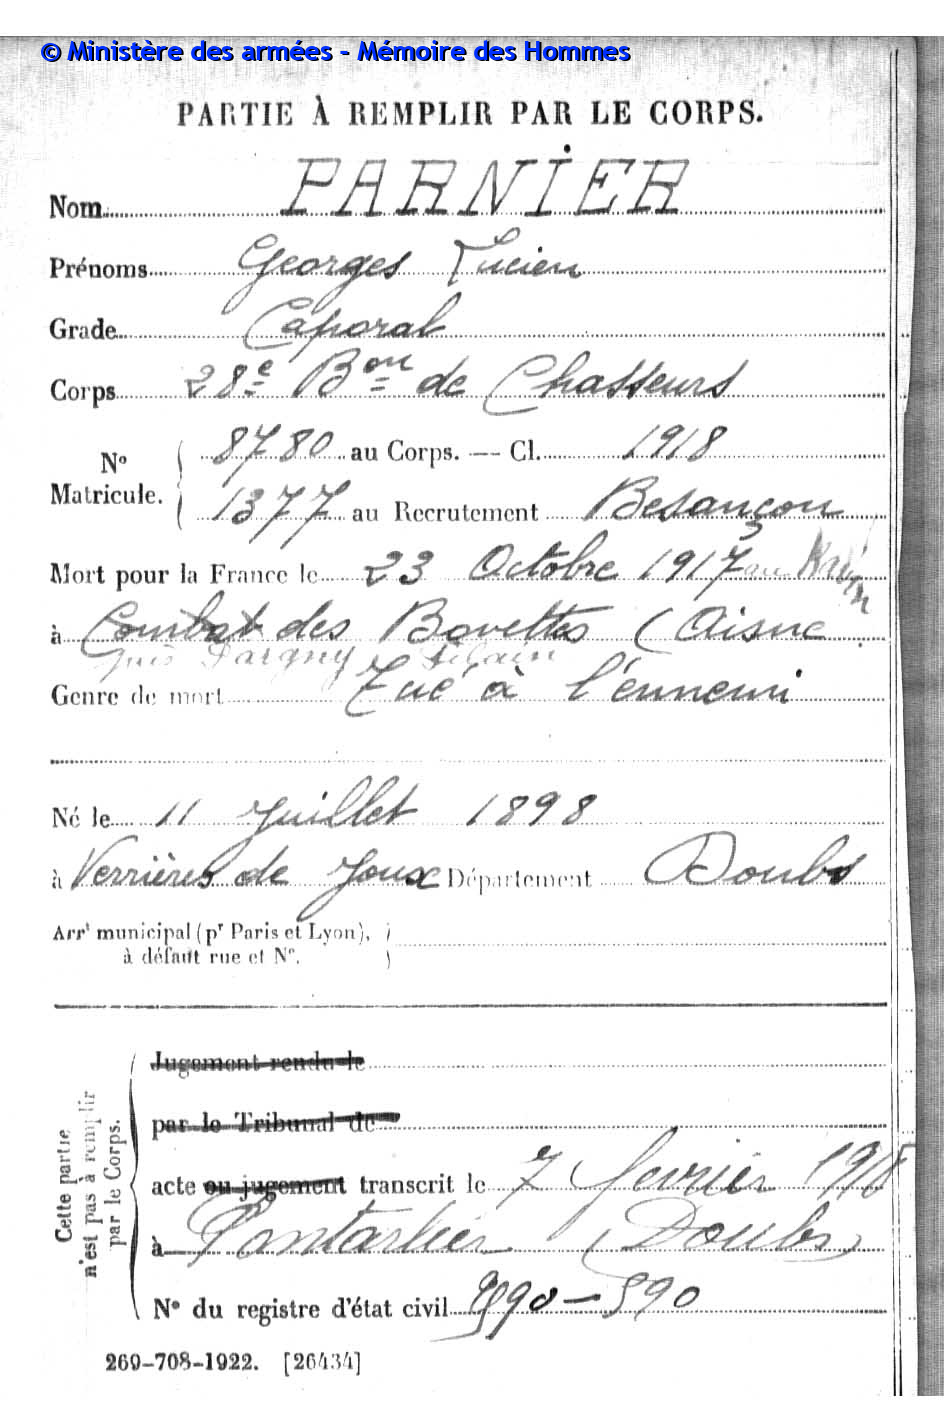 © Ministère des armées - Mémoire des Hommes
PARTIE À REMPLIR PAR LE CORPS.
Nom PARNIER
Prénoms Georges Lucien
Grade Caporal
Corps 28e Bon de Chasseurs
No Matricule. 8780 au Corps. — Cl. 1918
1377 au Recrutement Besançon
Mort pour la France le 23 Octobre 1917 au
à Combat des Bovettes (Aisne
Pargny Filain
Genre de mort Tué à l'ennemi
Né le 11 Juillet 1898
à Verrières de Joux Département Doubs
Arrt municipal (pr Paris et Lyon),
à défaut rue et No.
Cette partie n'est pas à remplir par le Corps.
Jugement rendu le
par le Tribunal de
acte ou jugement transcrit le 7 février 1918
à Pontarlier (Doubs)
No du registre d'état civil 590
269-708-1922. [26434]